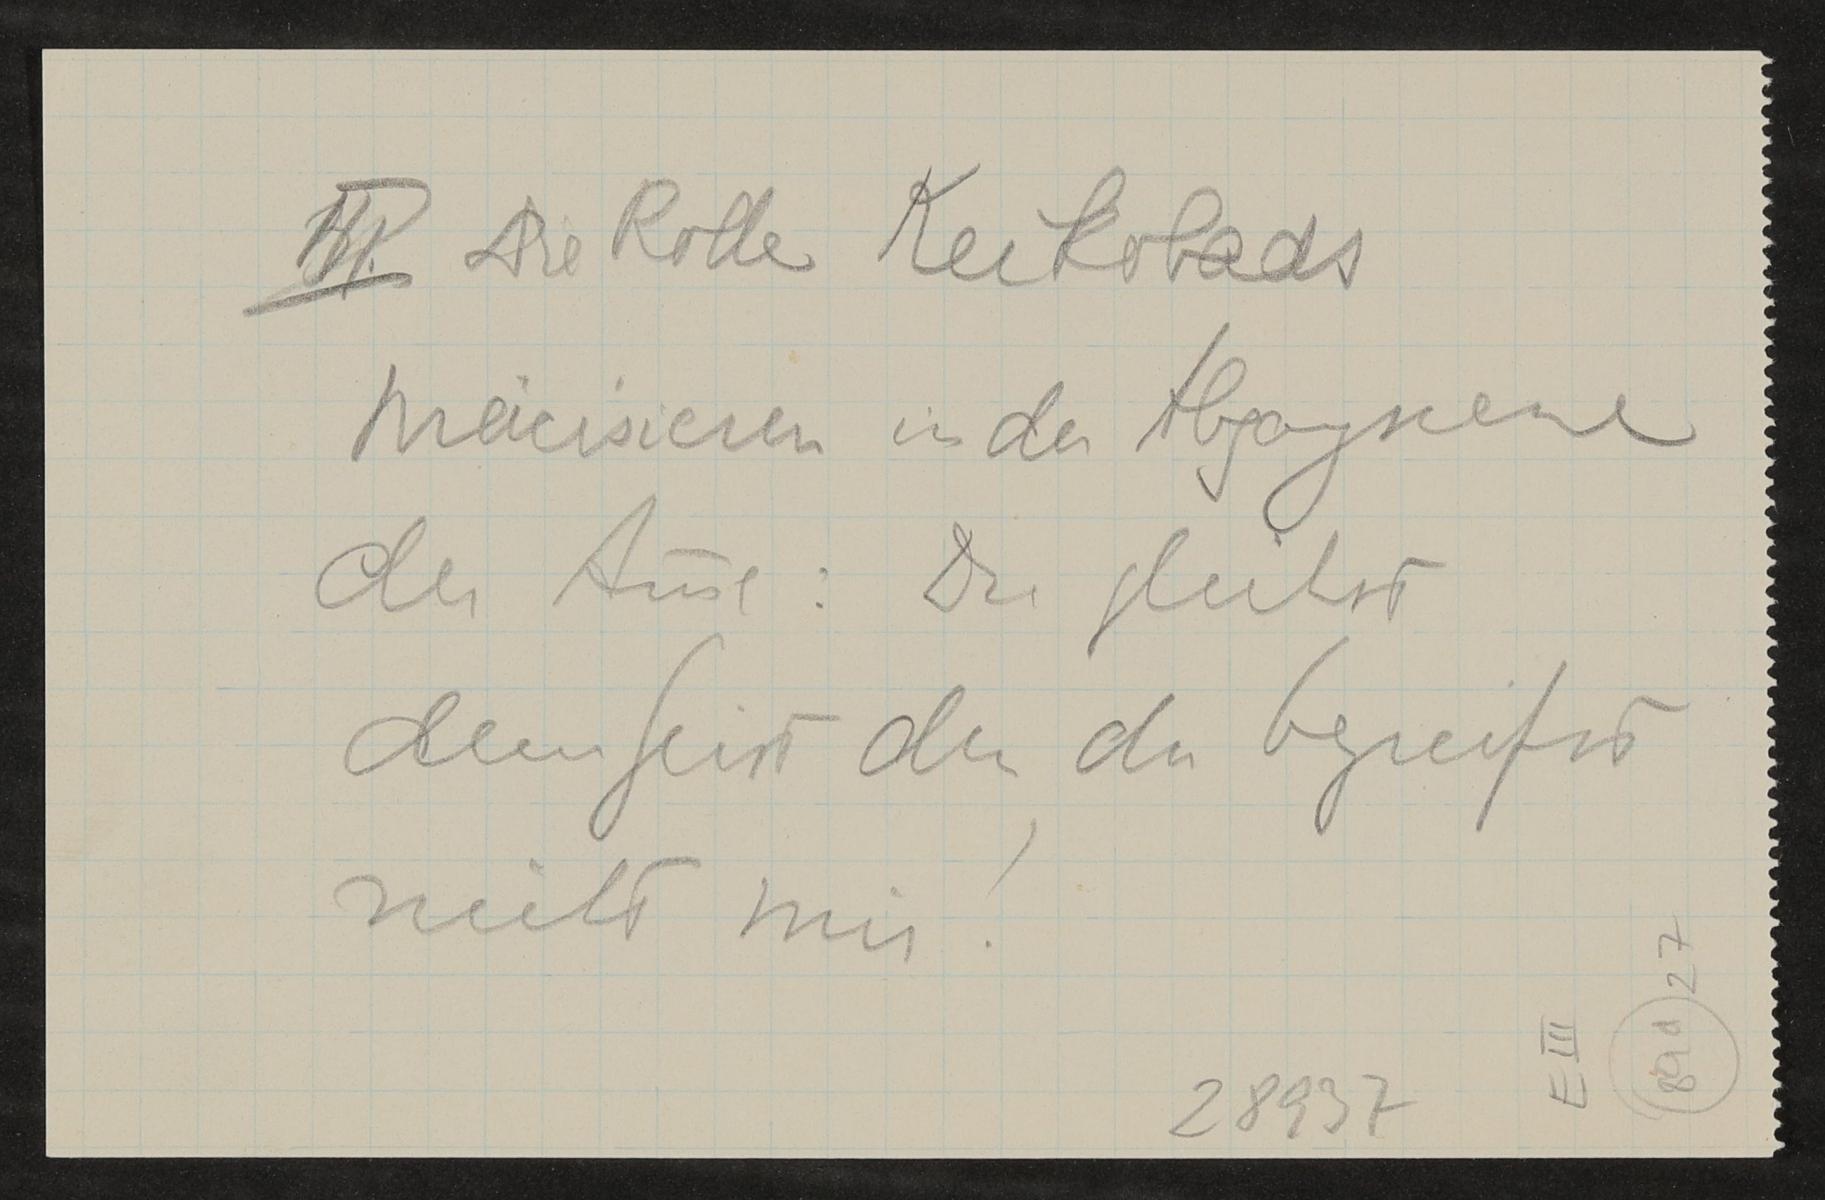 III. Die Rolle Keikobads
präcisieren in der Abgangscene
der Am̄e: Du gleichst
dem Geist den du begreifst
nicht mir!
28937
E III
27